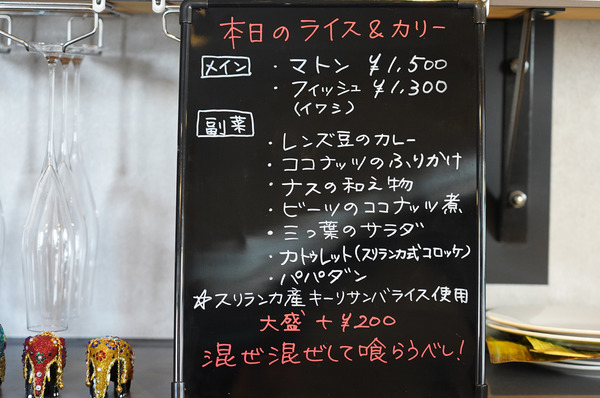 本日のライス&カリー
メイン ・マトン ¥1,500
・フィッシュ ¥1,300
(イワシ)
副菜
・レンズ豆のカレー
・ココナッツのふりかけ
・ナスの和え物
・ビーツのココナッツ煮
・三っ葉のサラダ
・カトゥレット(スリランカ式コロッケ)
・パパダン
☆スリランカ産キーリサンバライス使用
大盛+¥200
混ぜ混ぜして喰らうべし!